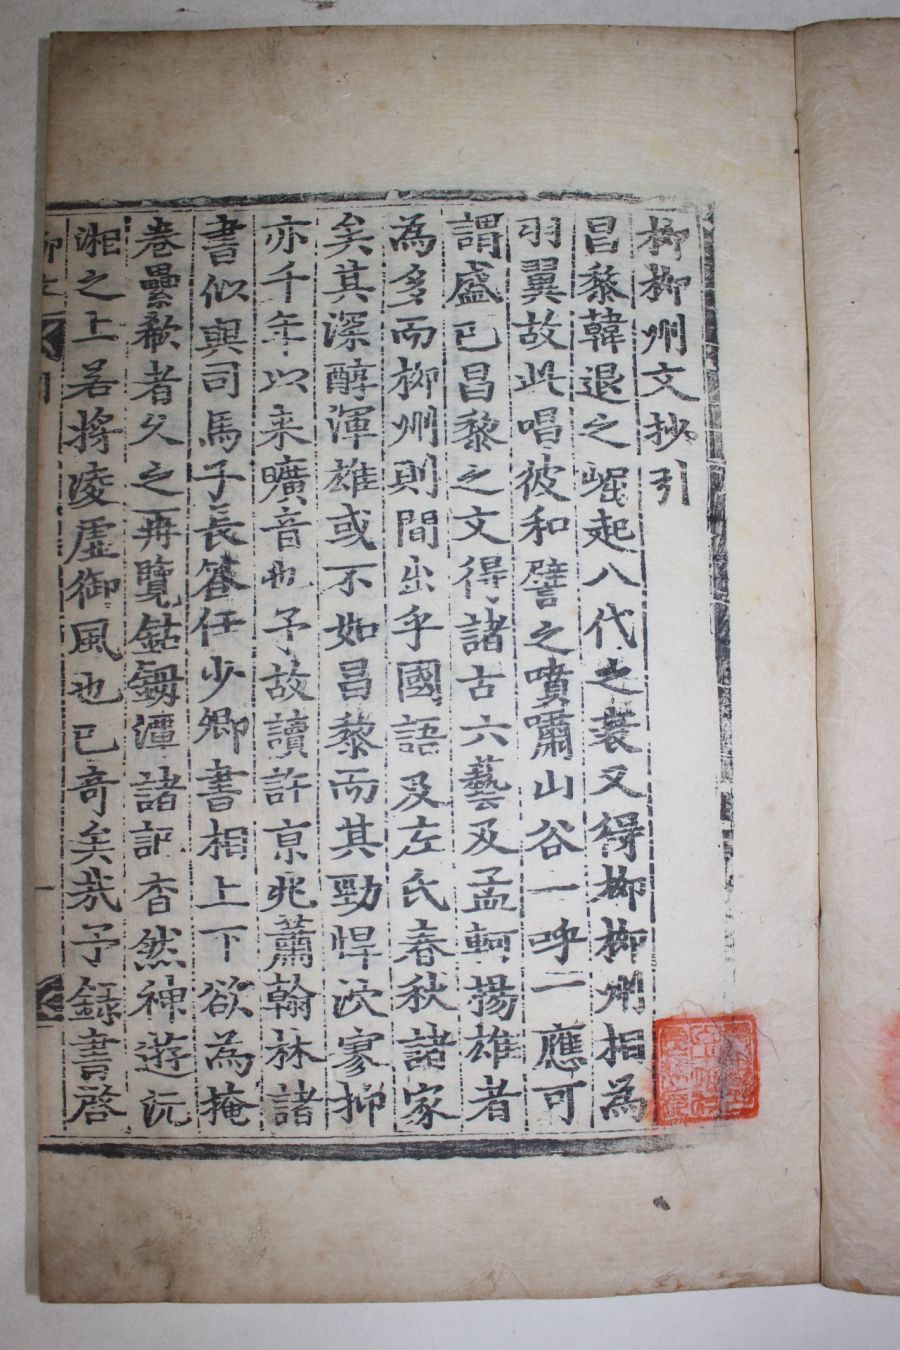 柳柳州文抄引
昌黎韓退之崛起八代之衰又得柳柳州相為
羽翼故此唱彼和譬之噴嘯山谷一呼二應可
謂盛已昌黎之文得諸古六藝及孟軻揚雄者
為多而柳州則間出乎國語及左氏春秋諸家
矣其深醇渾雄或不如昌黎而其勁悍泬寥抑
亦千年以来曠音也予故讀許京兆蕭翰林諸
書似與司馬子長答任少卿書相上下欲為掩
巻纍欷者久之再覽鈷鉧潭諸記杳然神遊沅
湘之上若將凌虛御風也已奇矣哉予錄書啓